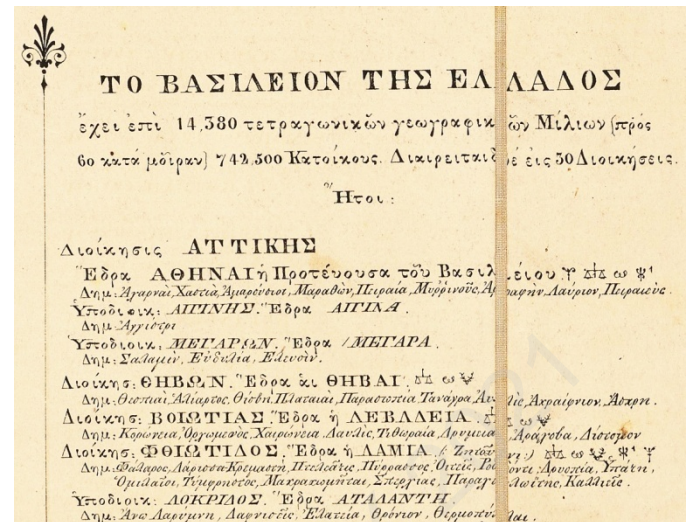 ΤΟ ΒΑΣΙΛΕΙΟΝ ΤΗΣ ΕΛΛΑΔΟΣ
ἔχει ἐπὶ 14,380 τετραγωνικῶν γεωγραφικῶν Μιλίων (πρὸς
60 κατὰ μοῖραν) 742,500 Κατοίκους. Διαιρεῖται δὲ εἰς 30 Διοικήσεις.
Ἤτοι:
Διοίκησις ΑΤΤΙΚΗΣ
Ἕδρα ΑΘΗΝΑΙ ἡ Προτέυουσα τοῦ Βασιλείου
Δημ: Ἀχαρναὶ, Χαστιὰ, Ἀμαρύσιοι, Μαραθὼν, Πειραία, Μυρρινοῦς, Λαύριον, Πειραιεὺς.
Ὑποδιοικ: ΑΙΓΙΝΗΣ. Ἕδρα ΑΙΓΙΝΑ.
Δημ: Ἀγγίστρι
Ὑποδιοικ: ΜΕΓΑΡΩΝ. Ἕδρα ΜΕΓΑΡΑ.
Δημ: Σαλαμὶν, Εὐδυλία, Ἐλευσὶν.
Διοίκησ: ΘΗΒΩΝ. Ἕδρα ἁι ΘΗΒΑΙ.
Δημ: Θεσπιαὶ, Ἁλίαρτος, Θίσβη, Πλαταιαὶ, Παραστοπία, Τανάγρα, Ἀκραίφνιον, Ἄσκρη.
Διοίκησ: ΒΟΙΩΤΙΑΣ. Ἕδρα ἡ ΛΕΒΑΔΕΙΑ.
Δημ: Κορώνεια, Ὀρχομενὸς, Χαιρώνεια, Δαυλὶς, Τιθωραία, Ἀράχοβα, Δίστομον
Διοίκησ: ΦΘΙΩΤΙΔΟΣ. Ἕδρα ἡ ΛΑΜΙΑ
Δημ: Φάλαρος, Λάρισσα Κρεμαστὴ, Πτελεάτις, Πύρρασος, Δρυοπία, Ὑπάτη,
Ὁμιλαῖοι, Τύμφρηστος, Μακρακωμῆται, Σπερχιὰς, Καλλιεῖς.
Ὑποδιοικ: ΛΟΚΡΙΔΟΣ. Ἕδρα ΑΤΑΛΑΝΤΗ.
Δημ: Ἄνω Λαρύμνη, Δαφνισίς, Ἐλατεία, Θρόνιον, Θερμοπύλαι.